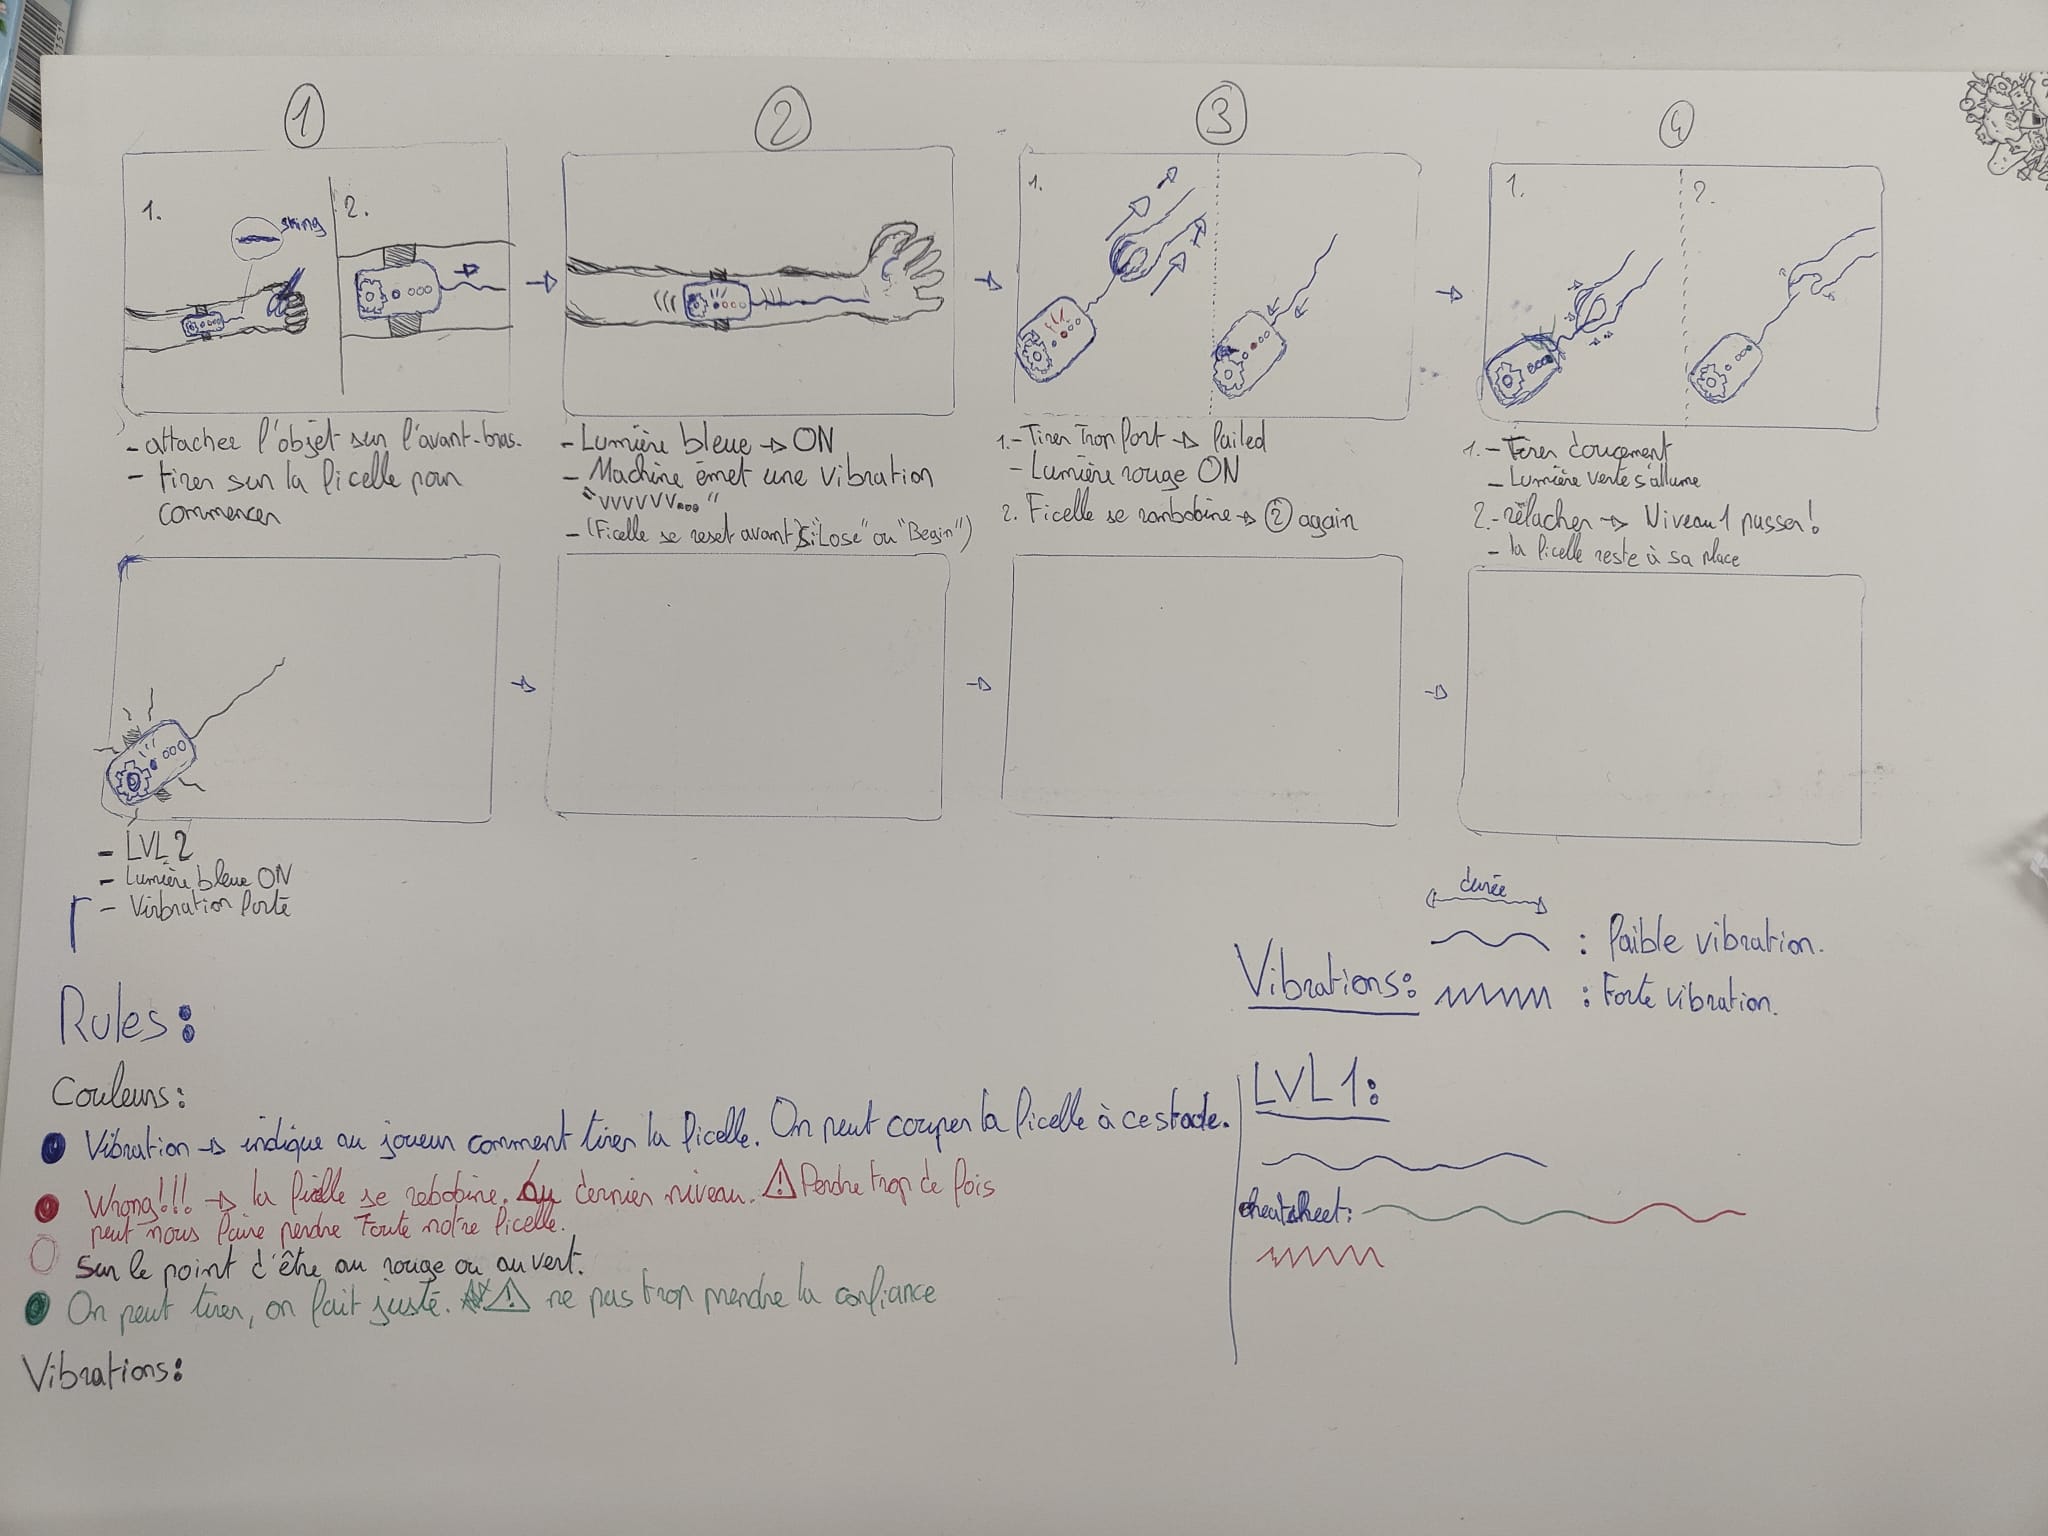 1
2
3
4
1.
string
2.
1.
1.
2.
- attacher l'objet sur l'avant-bras.
- tirer sur la ficelle pour
commencer
- Lumière bleue → ON
- Machine émet une vibration
"vvvvvv..."
- (Ficelle se reset avant si "Lose" ou "Begin")
1.- Tirer Trop fort → failed
- Lumière rouge ON
2. Ficelle se rembobine → 2 again
1.- Tirer doucement
- Lumière verte s'allume
2.- relacher → Niveau 1 passer!
- la ficelle reste à sa place
- LVL 2
- Lumière bleue ON
- Virbration forte
durée
Vibrations:
: faible vibration.
: Forte vibration.
Rules:
Couleurs:
Vibration → indique au joueur comment tirer la ficelle. On peut couper la ficelle à ce stade.
Wrong!!! → la ficelle se rebobine. Au dernier niveau. ⚠ Perdre trop de fois
peut nous faire perdre Toute notre ficelle.
Sur le point d'être au rouge ou au vert.
On peut tirer, on fait juste. ⚠ ne pas trop prendre la confiance
Vibrations:
LVL 1:
cheatsheet: